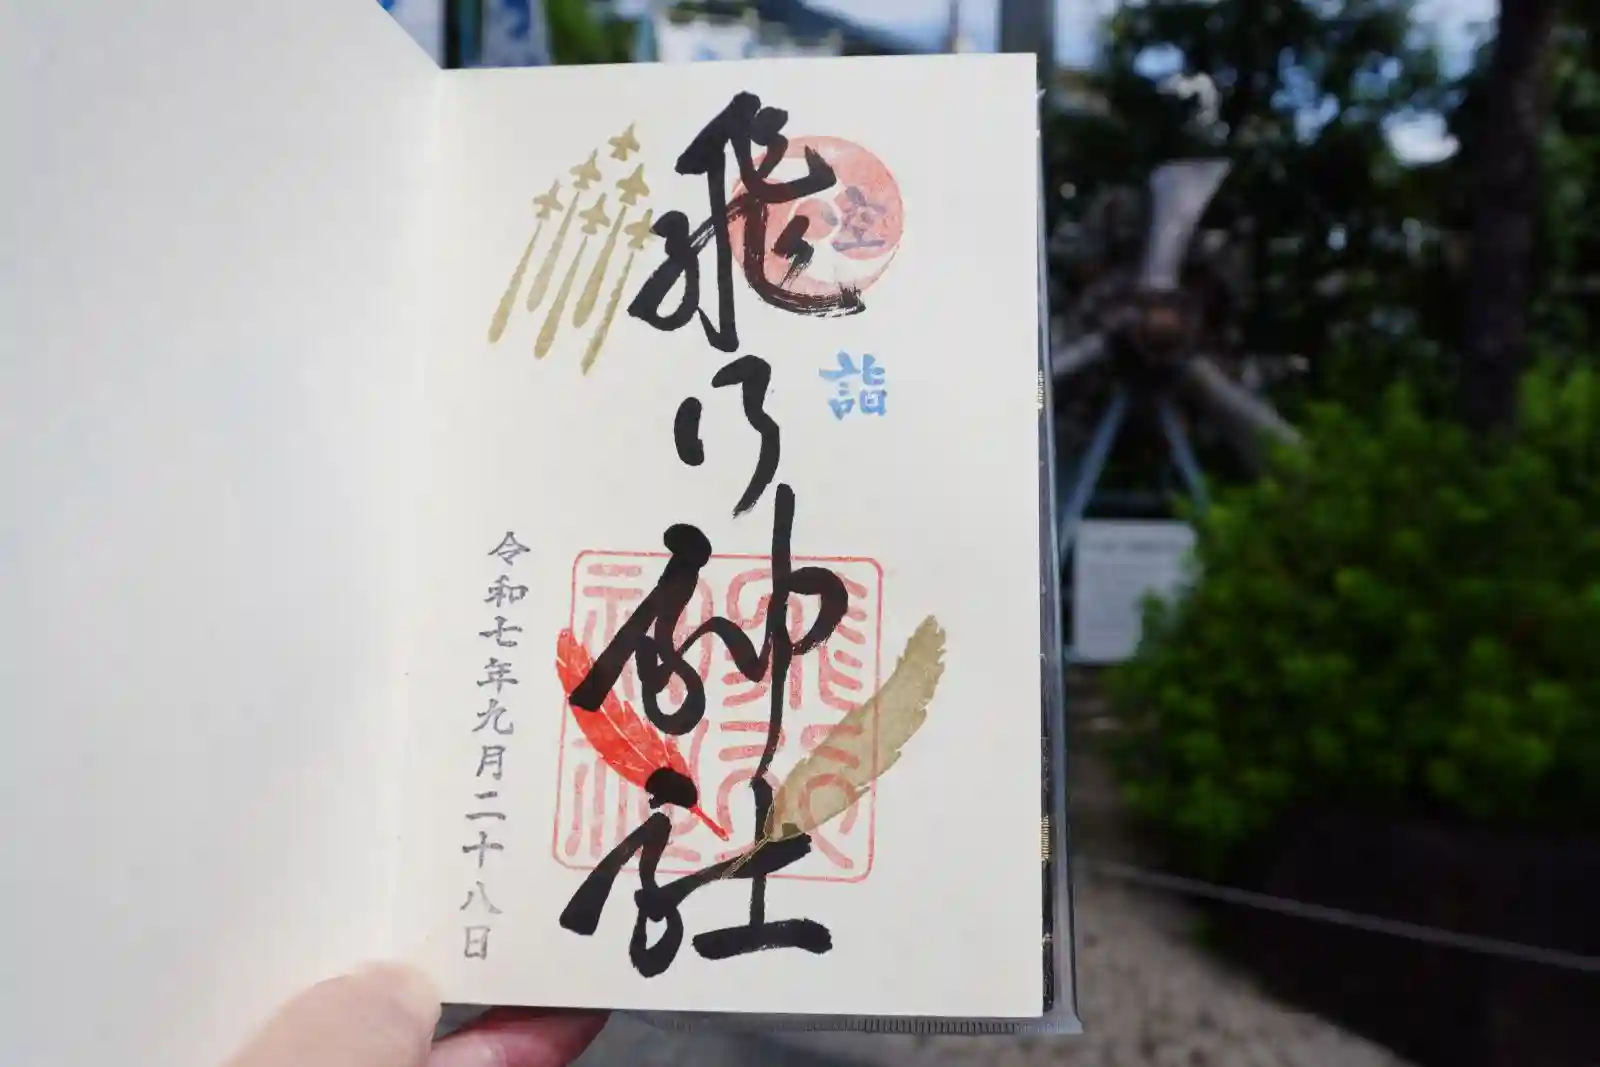 空詣
飛行神社
飛行
神社
令和七年九月二十八日